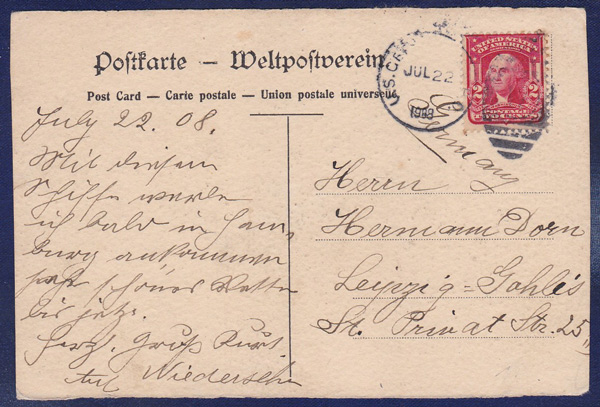 Postkarte — Weltpostverein
Post Card — Carte postale — Union postale universelle
U.S. 
JUL 22
1908
UNITED STATES
OF AMERICA
2 2
POSTAGE
TWO CENTS
Germany
July 22. 08.
Mit diesem
Schiffe werde
ich bald in Ham-
burg ankommen
schönes Wetter
bis jetzt.
Herzl. Gruß Kurt.
Auf Wiedersehn
Herrn
Hermann Dorn
Leipzig=Gohlis
St. Privat Str. 25